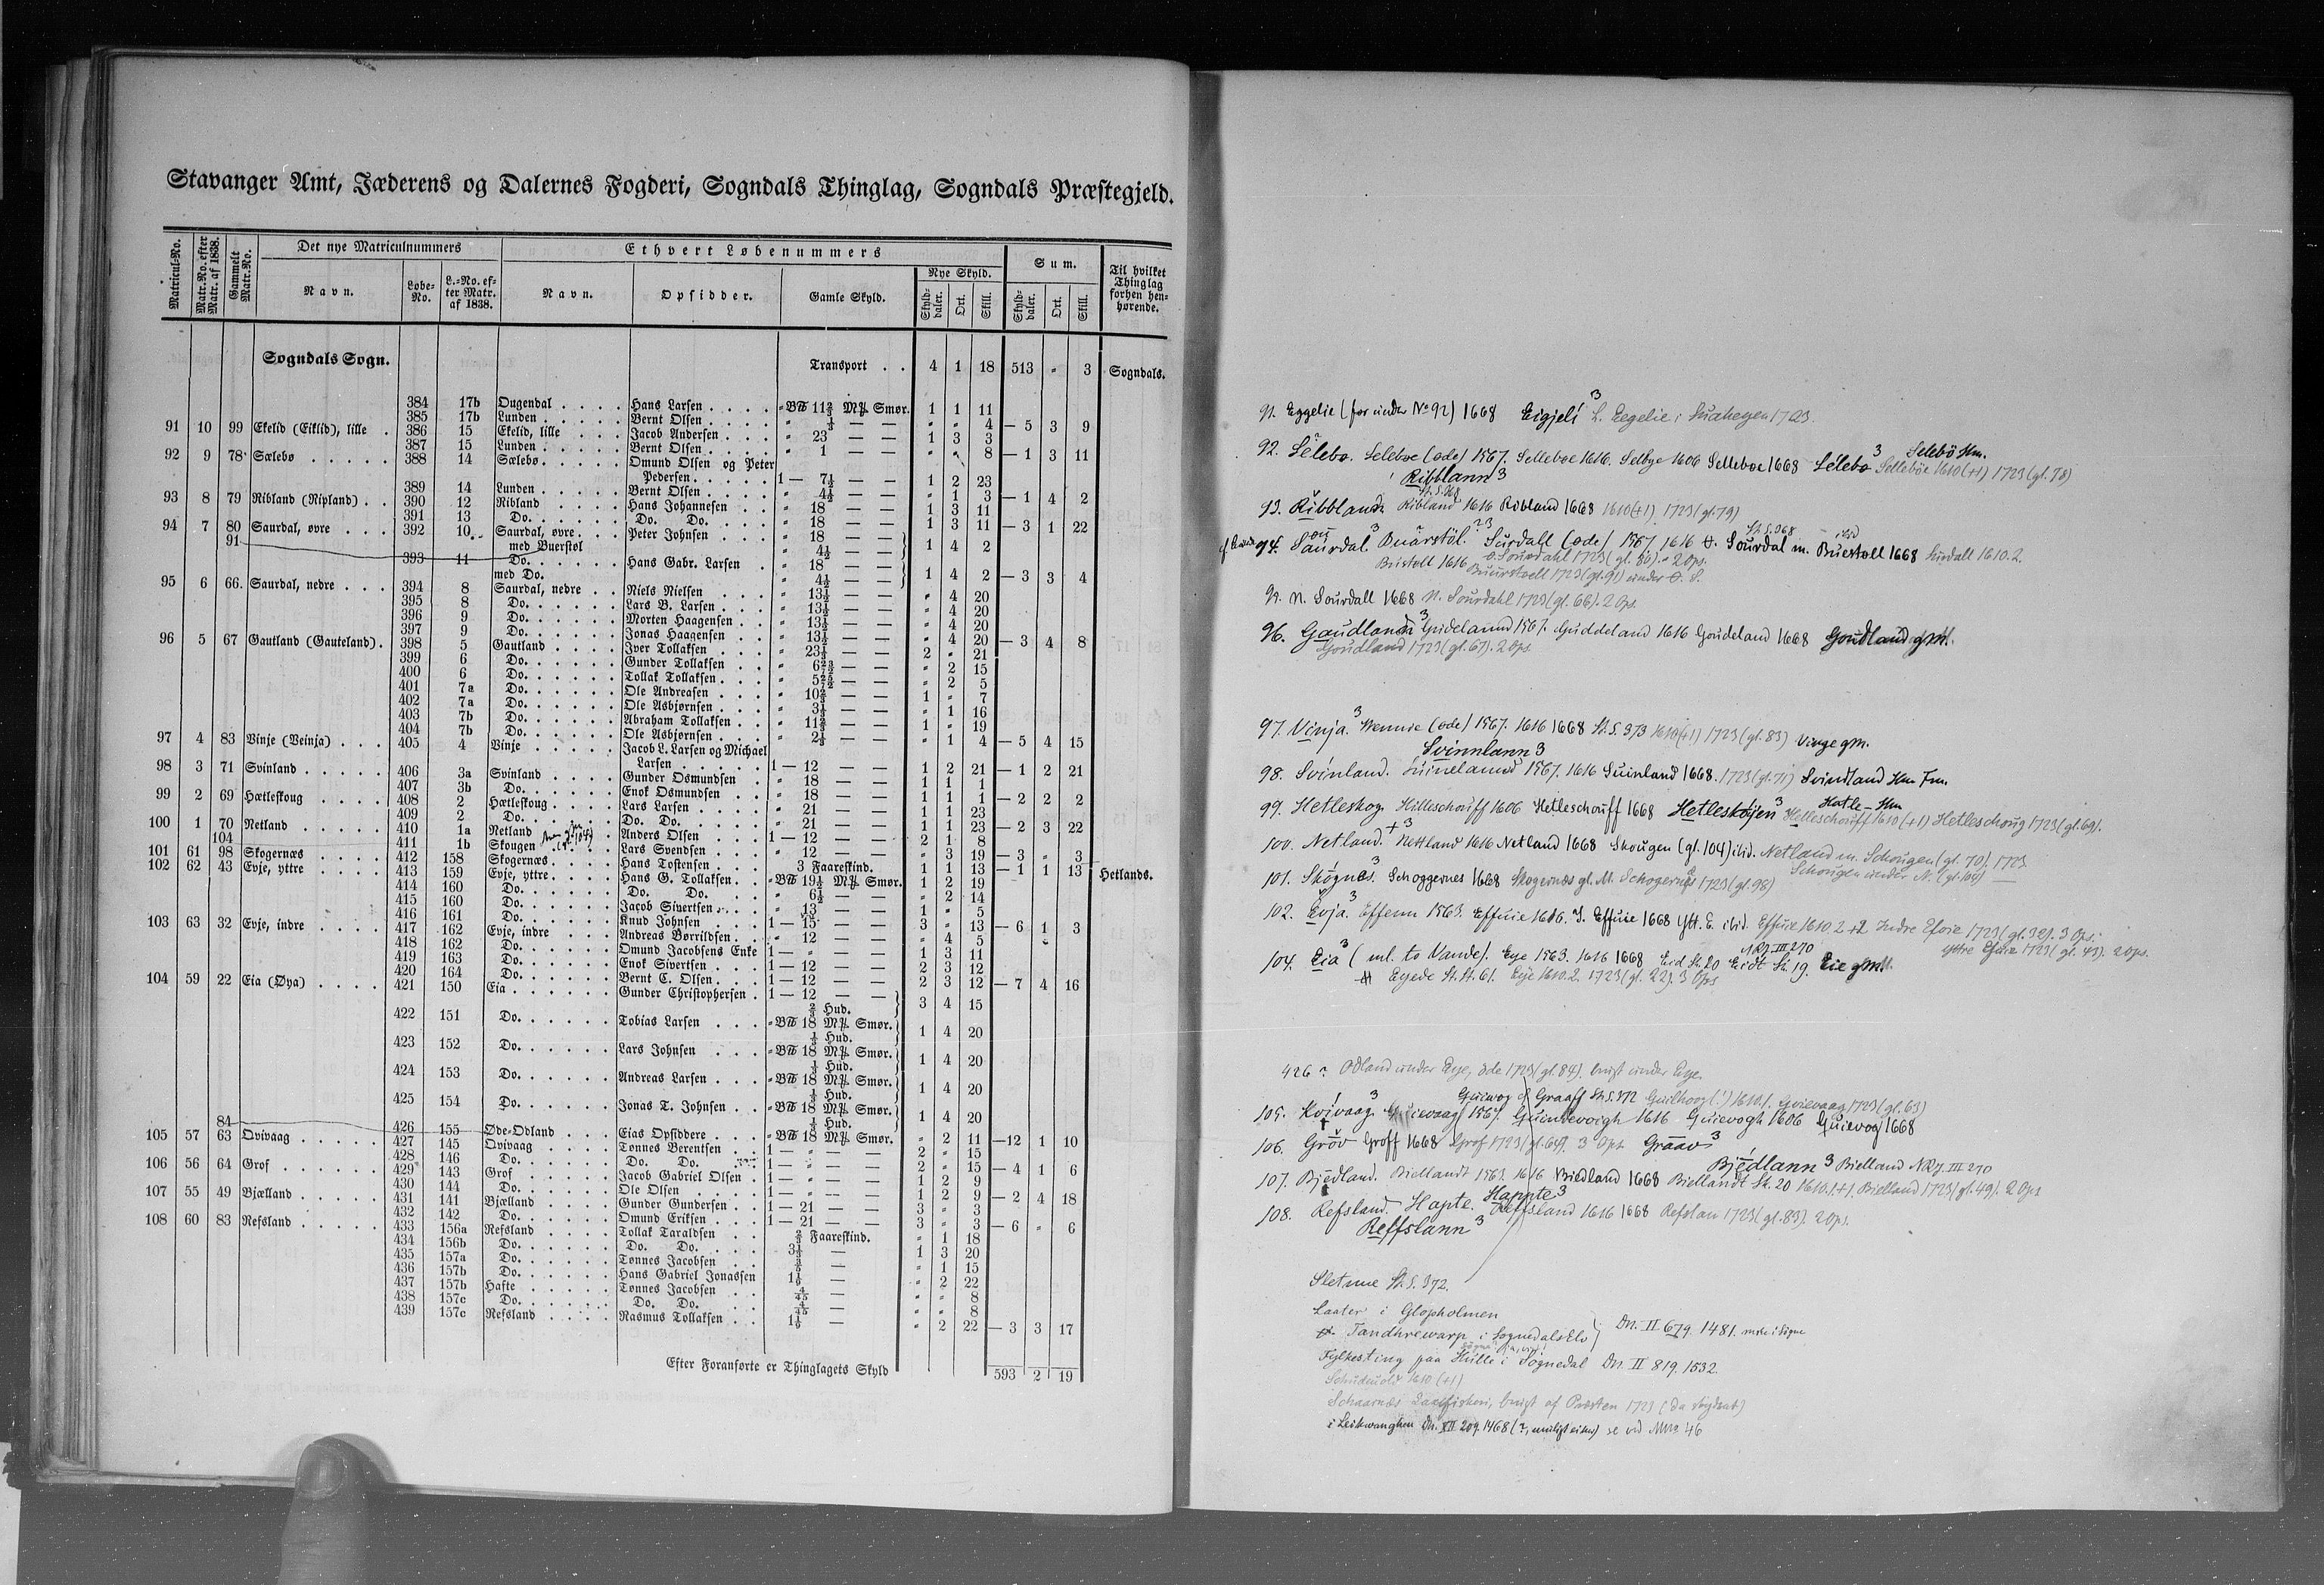 Stavanger Amt, Jæderens og Dalernes Fogderi, Sogndals Thinglag, Sogndals Præstegjeld.
Matricul-No. Matr.No. efter Matr. af 1838. Gammelt Matr.No. Det nye Matriculnummers Ethvert Løbenummers Sum. Til hvilket Thinglag forhen henhørende.
Navn. Løbe-No. L.-No. efter Matr. af 1838. Navn. Opsidder. Gamle Skyld. Nye Skyld. Skylddaler. Ort. Skill. Skylddaler. Ort. Skill.
Sogndals Sogn. Transport . . 4 1 18 513 " 3 Sogndals.
384 17b Dugendal . . . . Hans Larsen . . . . " BW 11 2/3 Mß Smør. 1 1 11
385 17b Lunden . . . . . Bernt Olsen . . . . " 1/3 — — " " 4 — 5 3 9
91 10 99 Ekelid (Eiklid), lille . 386 15 Ekelid, lille . . . Jacob Andersen . . . " 23 — — 1 3 3
387 15 Lunden . . . . . Bernt Olsen . . . . " 1 — — " " 8 — 1 3 11
92 9 78 Sælebø . . . . . 388 14 Sælebø . . . . . Omund Olsen og Peter
Pedersen . . . . . 1 — 7 1/2 — — 1 2 23
389 14 Lunden . . . . . Bernt Olsen . . . . " 4 1/2 — — " 1 3 — 1 4 2
93 8 79 Ribland (Ripland) . . 390 12 Ribland . . . . Hans Johannesen . . " 18 — — 1 3 11
391 13 Do. . . . . . Do. Do. . . . " 18 — — 1 3 11 — 3 1 22
94 7 80 Saurdal, øvre . . . 392 10 Saurdal, øvre . . . Peter Johnsen . . . " 18 — —
91 med Buerstøl " 4 1/2 — — 1 4 2
393 11 Do. . . . . . Hans Gabr. Larsen . " 18 — —
med Do. " 4 1/2 — — 1 4 2 — 3 3 4
95 6 66. Saurdal, nedre . . . 394 8 Saurdal, nedre . . Niels Nielsen . . . " 13 1/2 — — " 4 20
395 8 Do. . . . . . Lars B. Larsen . . . " 13 1/2 — — " 4 20
396 9 Do. . . . . . Morten Haagensen . . " 13 1/2 — — " 4 20
397 9 Do. . . . . . Jonas Haagensen . . " 13 1/2 — — " 4 20 — 3 4 8
96 5 67 Gautland (Gauteland) . 398 5 Gautland . . . . Iver Tollaksen . . . " 23 1/3 — — 2 " 21
399 6 Do. . . . . . Gunder Tollaksen . . " — — " 2 15
400 6 Do. . . . . . Tollak Tollaksen . . . " — — " 2 5
401 7a Do. . . . . . Ole Andreasen . . . " — — 1 " 7
402 7a Do. . . . . . Ole Asbjørnsen . . . " — — " 1 16
403 7b Do. . . . . . Abraham Tollaksen . . " — — 1 " 19
404 7b Do. . . . . . Ole Asbjørnsen . . . " — — " 1 4 — 5 4 15
97 4 83 Vinje (Veinja) . . . 405 4 Vinje . . . . . Jacob L. Larsen og Michael
Larsen . . . . . . 1 — 12 — — 1 2 21 — 1 2 21
98 3 71 Svinland . . . . . 406 3a Svinland . . . . Gunder Osmundsen . " 18 — — 1 1 1
407 3b Do. . . . . . Enok Osmundsen . . " 18 — — 1 1 1 — 2 2 2
99 2 69 Hætleskoug . . . . 408 2 Hætleskoug . . . . Lars Larsen . . . . " 21 — — 1 1 23
409 2 Do. . . . . . Do. Do. . . . . " 21 — — 1 1 23 — 2 3 22
100 1 70 Netland . . . . . 410 1a Netland Anders Olsen . . . 1 — 12 — — 2 1 8
104 411 1b Skougen Lars Svendsen . . . " 12 — — " 3 19 — 3 " 3
101 61 98 Skogernæs . . . . 412 158 Skogernæs . . . . Hans Tostensen . . . 3 Faareskind. 1 1 13 — 1 1 13
102 62 43 Evje, yttre . . . . 413 159 Evje, yttre . . . . Hans G. Tollaksen . . " BW 19 1/2 Mß Smør. 1 2 19 Hetlands.
414 160 Do. . . . . . Do. Do. . . " 6 1/2 — — " 2 14
415 160 Do. . . . . . Jacob Sivertsen . . . " 13 — — 1 " 5
416 161 Do. . . . . . Knud Johnsen . . . 1 — 15 — — 3 " 13 — 6 1 3
103 63 32 Evje, indre . . . . 417 162 Evje, indre . . . Andreas Børrildsen . . " 12 — — " 4 5
418 162 Do. . . . . . Omund Jacobsens Enke 1 — " — — 1 3 11
419 163 Do. . . . . . Enok Sivertsen . . . 1 — 12 — — 2 3 12
420 164 Do. . . . . . Bernt C. Olsen . . . 1 — 12 — — 2 3 12 — 7 4 16
104 59 22 Eia (Øya) . . . . 421 150 Eia . . . . . . Gunder Christophersen . 1 — 12 — —
Hud. 3 4 15
422 151 Do. . . . . . Tobias Larsen . . . " BW 18 Mß Smør.
Hud. 1 4 20
423 152 Do. . . . . . Lars Johnsen . . . " BW 18 Mß Smør.
Hud. 1 4 20
424 153 Do. . . . . . Andreas Larsen . . . " BW 18 Mß Smør.
Hud. 1 4 20
425 154 Do. . . . . . Jonas T. Johnsen . . " BW 18 Mß Smør.
Hud. 1 4 20
84 426 155 Øde-Odland . . . Eias Opsiddere . . . " BW 18 Mß Smør. " 2 11 — 12 1 10
105 57 63 Qvivaag . . . . . 427 145 Qvivaag . . . . Tønnes Berentsen . . 1 — " — — 2 " 15
428 146 Do. . . . . . Do. Do. 1 — " — — 2 " 15 — 4 1 6
106 56 64 Grof . . . . . . 429 143 Grof . . . . . Jacob Gabriel Olsen . 1 — " — — 1 2 9
430 144 Do. . . . . . Ole Olsen . . . . 1 — " — — 1 2 9 — 2 4 18
107 55 49 Bjælland . . . . . 431 141 Bjælland . . . . Gunder Gundersen . . 1 — 21 — — 3 " 3
432 142 Do. . . . . . Omund Eriksen . . . 1 — 21 — — 3 " 3 — 6 " 6
108 60 83 Refsland . . . . . 433 156a Refsland . . . . Tollak Taraldsen . . 2/3 Faareskind. " 1 18
434 156b Do. . . . . . Do. Do. . . . 3 1/3 — 1 3 20
435 157a Do. . . . . . Tønnes Jacobsen . . — " 1 15
436 157b Do. . . . . . Hans Gabriel Jonassen — " 2 22
437 157b Hafte . . . . . Tønnes Jacobsen . . — " " 8
438 157c Do. . . . . . Do. Do. . . — " " 8
439 157c Refsland . . . . Rasmus Tollaksen . . — " 2 22 — 3 3 17
Efter Foranførte er Thinglagets Skyld 593 2 19
91. Eggelie (før under No 92) 1668 Eigjeli 3 L. Eegelie i 1723.
Selebø Hm.
92. Sèlebø. Selebøe (øde) 1567. Sellebøe 1616. Selbye 1606 Sellebøe 1668 Sélebø 3 Sellebøe 1610 (+1) 1723 (gl. 78)
Ribblann 3
93. Ribbland. Ribland 1616 Ribland 1668 1610 (+1) 1723 (gl. 79)
94. Saurdal. 3 Buarstöl. Surdall (øde) 1567 1616 Ø. Sourdal m. Buestoll 1668 Surdall 1610.2.
Bustoll 1616 Ø. Sourdahl 1723 (gl. 80). 2 Ops.
Buurstoell 1723 (gl. 91) under Ø. S.
95. N. Sourdall 1668 N. Sourdahl 1723 (gl. 66). 2 Ops.
96. Gaudland 3 Gudelannd 1567. Guddeland 1616 Goudeland 1668 Goudland gM.
Goudland 1723 (gl. 67). 2 Ops.
97. Vinja. 3 Wennie (øde) 1567. 1616 1668 St. S. 373 1610 (+1) 1723 (gl. 83) Vinge gM.
Svinnlann 3
98. Svinland. Suinelannd 1567. 1616 Suinland 1668. 1723 (gl. 71) Svindland Hm Fm.
Hatle- Hm
99. Hetleskog Hilleschouff 1606 Hetleschouff 1668 Hetleskogjen 3 Helleschouff 1610 (+1) Hetleschoug 1723 (gl. 69).
100. Netland. + 3 Nettland 1616 Netland 1668 Skougen (gl. 104) ibid. Netland m. Schougen (gl. 70) 1723
Schougen under N. (gl. 104)
101. Skógnes. 3 Schoggernes 1668 Skogernæs gl. M. Schogernes 1723 (gl. 98)
102. Evja. 3 Effenn 1563. Effuie 1606. I. Effuie 1668 Ytt. E. ibid. Effuie 1610 2 +2 Indre Efvie 1723 (gl. 32). 3 Ops.
Yttre Efvie 1723 (gl. 43). 2 Ops.
NRJ. III 270
104. Eia 3 (ml. to Vande). Eye 1563. 1616 1668 Eid St. 20 Eidt St. 19. Eie gM.
Eyede St. St. 61. Eye 1610.2. 1723 (gl. 22). 3 Ops
426? Odland under Eye, øde 1723 (gl. 84). brugt under Eye.
Guiwog Graaff St. S. 372 Guilhoog (!) 1610.1. Gvievaag 1723 (gl. 63)
105. Kvivaag. 3 1567. Guindevoigh 1616 Guievogh 1606 Guievog 1668
106. Grov Groff 1668 Grof 1723 (gl. 64). 3 Ops. Graav 3
Bjedlann 3 Bielland NRJ. III 270
107. Bjedland. Biellandt 1563. 1616 Biedland 1668 Biellandt St. 20 1610.1.+1. Bielland 1723 (gl. 49). 2 Ops
Happte 3
108. Refsland. Hapte. Reffsland 1616 1668 Refslan 1723 (gl. 83). 2 Ops.
Reffslann 3
Sletnue St. S. 372.
Laater i Glopholmen
Tandhrewarp i Sognedalselv Dn. II 679. 1481.
Fylkesting paa Hulle i Sognedal Dn. II 819. 1532.
1610 (+1)
Schaarnæs Laxefiskeri, brugt af Præsten 1723
i Leikwanghen Dn. XII 209. 1468 (?, muligt ) se ved MNo 46